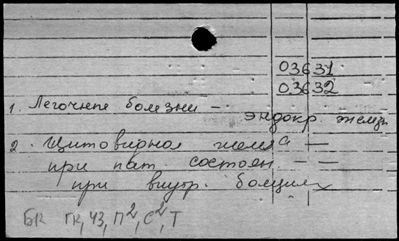 03631
03632
1. Легочные болезни —
эндокр. желез
2. Щитовидная железа —
при пат. состоян. — —
при внутр. болезнях
БК ГК, ЧЗ, П², С², Т